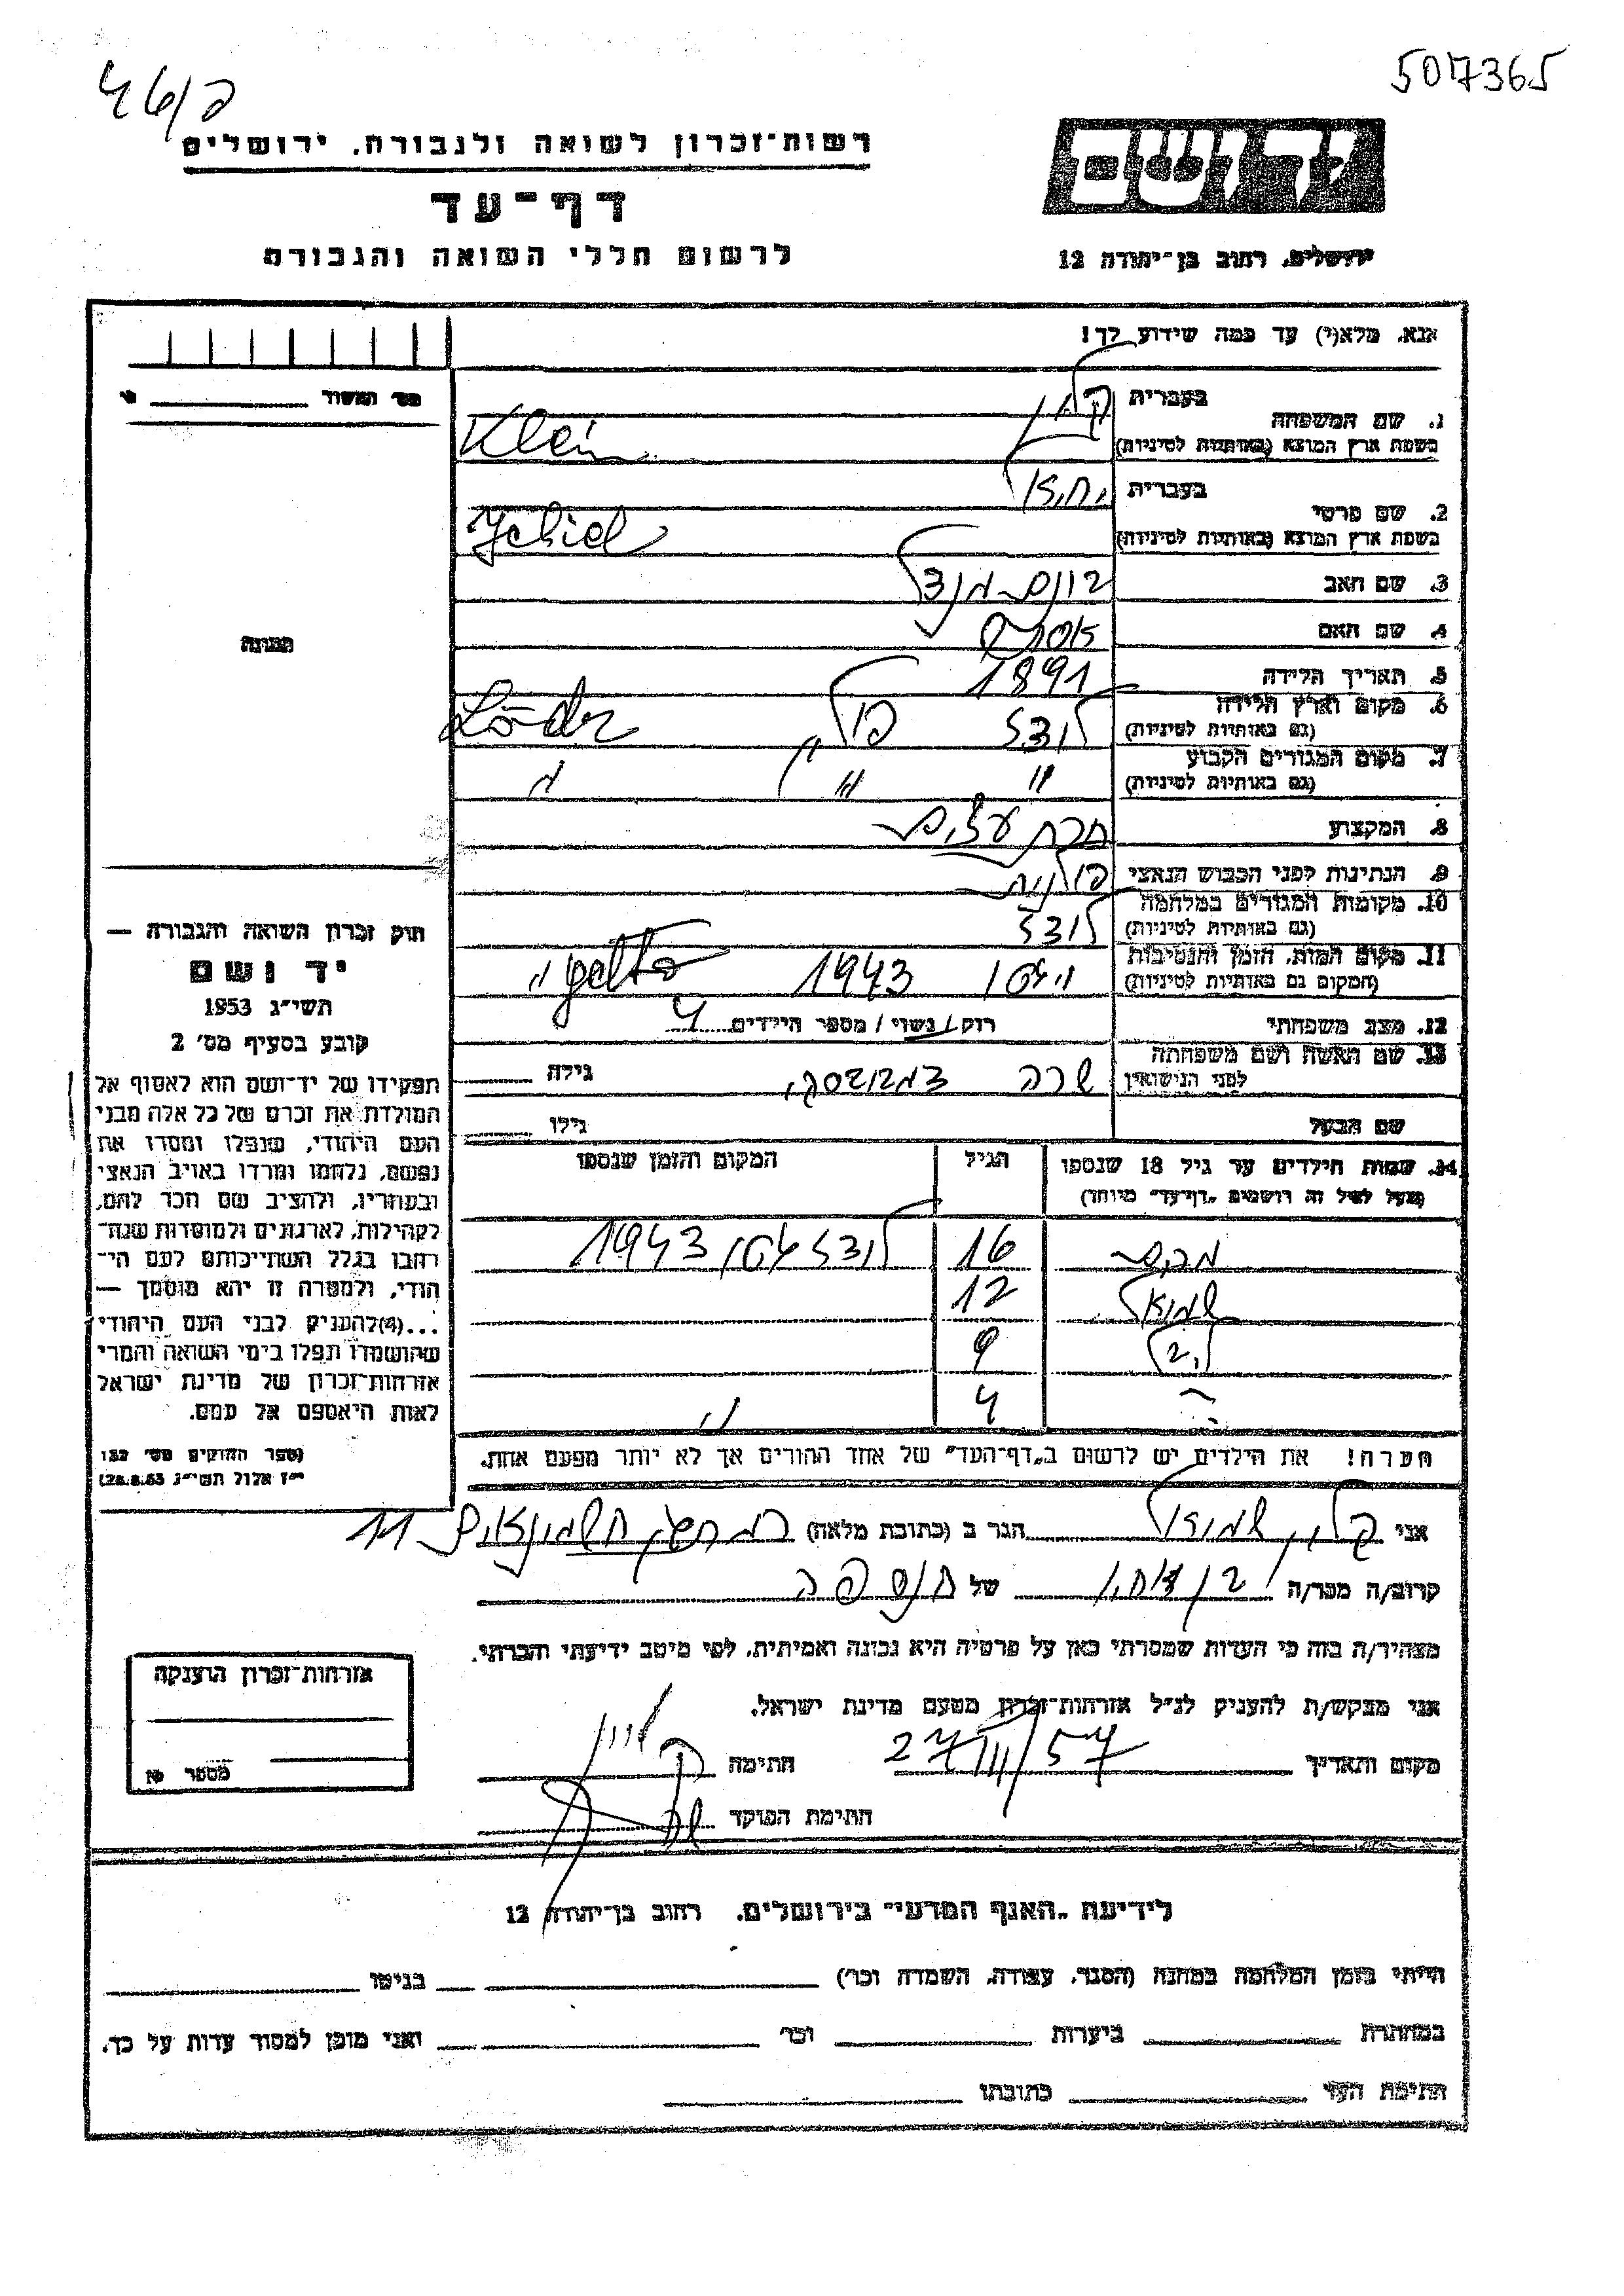 507365
46/ב
רשות־זכרון לשואה ולגבורה, ירושלים
דף־עד
לרשום חללי השואה והגבורה
ידושם
ירושלים, רחוב בן־יהודה 12
אנא, מלא(י) עד כמה שידוע לך!
1. שם המשפחה
בעברית קליין
בשפת ארץ המוצא (באותיות לטיניות) Klein
2. שם פרטי
בעברית יחיאל
בשפת ארץ המוצא (באותיות לטיניות) Jehiel
3. שם האב מנדל
4. שם האם אסתר
5. תאריך הלידה 1891
6. מקום וארץ הלידה
(גם באותיות לטיניות) לודז פולין Lódz
7. מקום המגורים הקבוע
(גם באותיות לטיניות) " " "
8. המקצוע עצים
9. הנתינות לפני הכבוש הנאצי פולנית
10. מקומות המגורים במלחמה
(גם באותיות לטיניות) לודז
11. מקום המות, הזמן והנסיבות
(המקום גם באותיות לטיניות) גיטו 1943 "getto"
12. מצב משפחתי רוק/נשוי/מספר הילדים 4
13. שם האשה ושם משפחתה
לפני הנישואין שרה גילה
שם הבעל גילו
14. שמות הילדים עד גיל 18 שנספו הגיל המקום והזמן שנספו
(מעל לגיל זה רושמים "דף־עד" מיוחד)
16 לודז גטו 1943
שמואל 12
9
4 "
הערה! את הילדים יש לרשום ב"דף־העד" של אחד ההורים אך לא יותר מפעם אחת.
מס' המשור מ'
תמונה
חוק זכרון השואה והגבורה —
יד ושם
תשי"ג 1953
קובע בסעיף מס' 2
תפקידו של יד־ושם הוא לאסוף אל
המולדת את זכרם של כל אלה מבני
העם היהודי, שנפלו ומסרו את
נפשם, נלחמו ומרדו באויב הנאצי
ובעוזריו, ולהציב שם וזכר להם,
לקהילות, לארגונים ולמוסדות שנח־
רבו בגלל השתייכותם לעם הי־
הודי, ולמטרה זו יהא מוסמך —
...(4)להעניק לבני העם היהודי
שהושמדו ונפלו בימי השואה והמרי
אזרחות־זכרון של מדינת ישראל
לאות היאספם אל עמם.
(ספר החוקים מס' 132
י"ז אלול תשי"ג 28.8.53)
אני קליין שמואל הגר ב (כתובת מלאה) חשמונאים 11
קרוב/ה מכר/ה בן אחי של הנספה
מצהיר/ה בזה כי העדות שמסרתי כאן על פרטיה היא נכונה ואמיתית, לפי מיטב ידיעתי והכרתי.
אני מבקש/ת להעניק לנ"ל אזרחות־זכרון מטעם מדינת ישראל.
מקום ותאריך 27/III/57 חתימה קליין
חתימת הפוקד
אזרחות־זכרון הוענקה
מספר מ'
לידיעת "האגף המדעי" בירושלים, רחוב בן־יהודה 12
הייתי בזמן המלחמה במחנה (הסגר, עבודה, השמדה וכו') בגיטו
במחתרת ביערות וכו' ואני מוכן למסור עדות על כך.
חתימת העד כתובתו